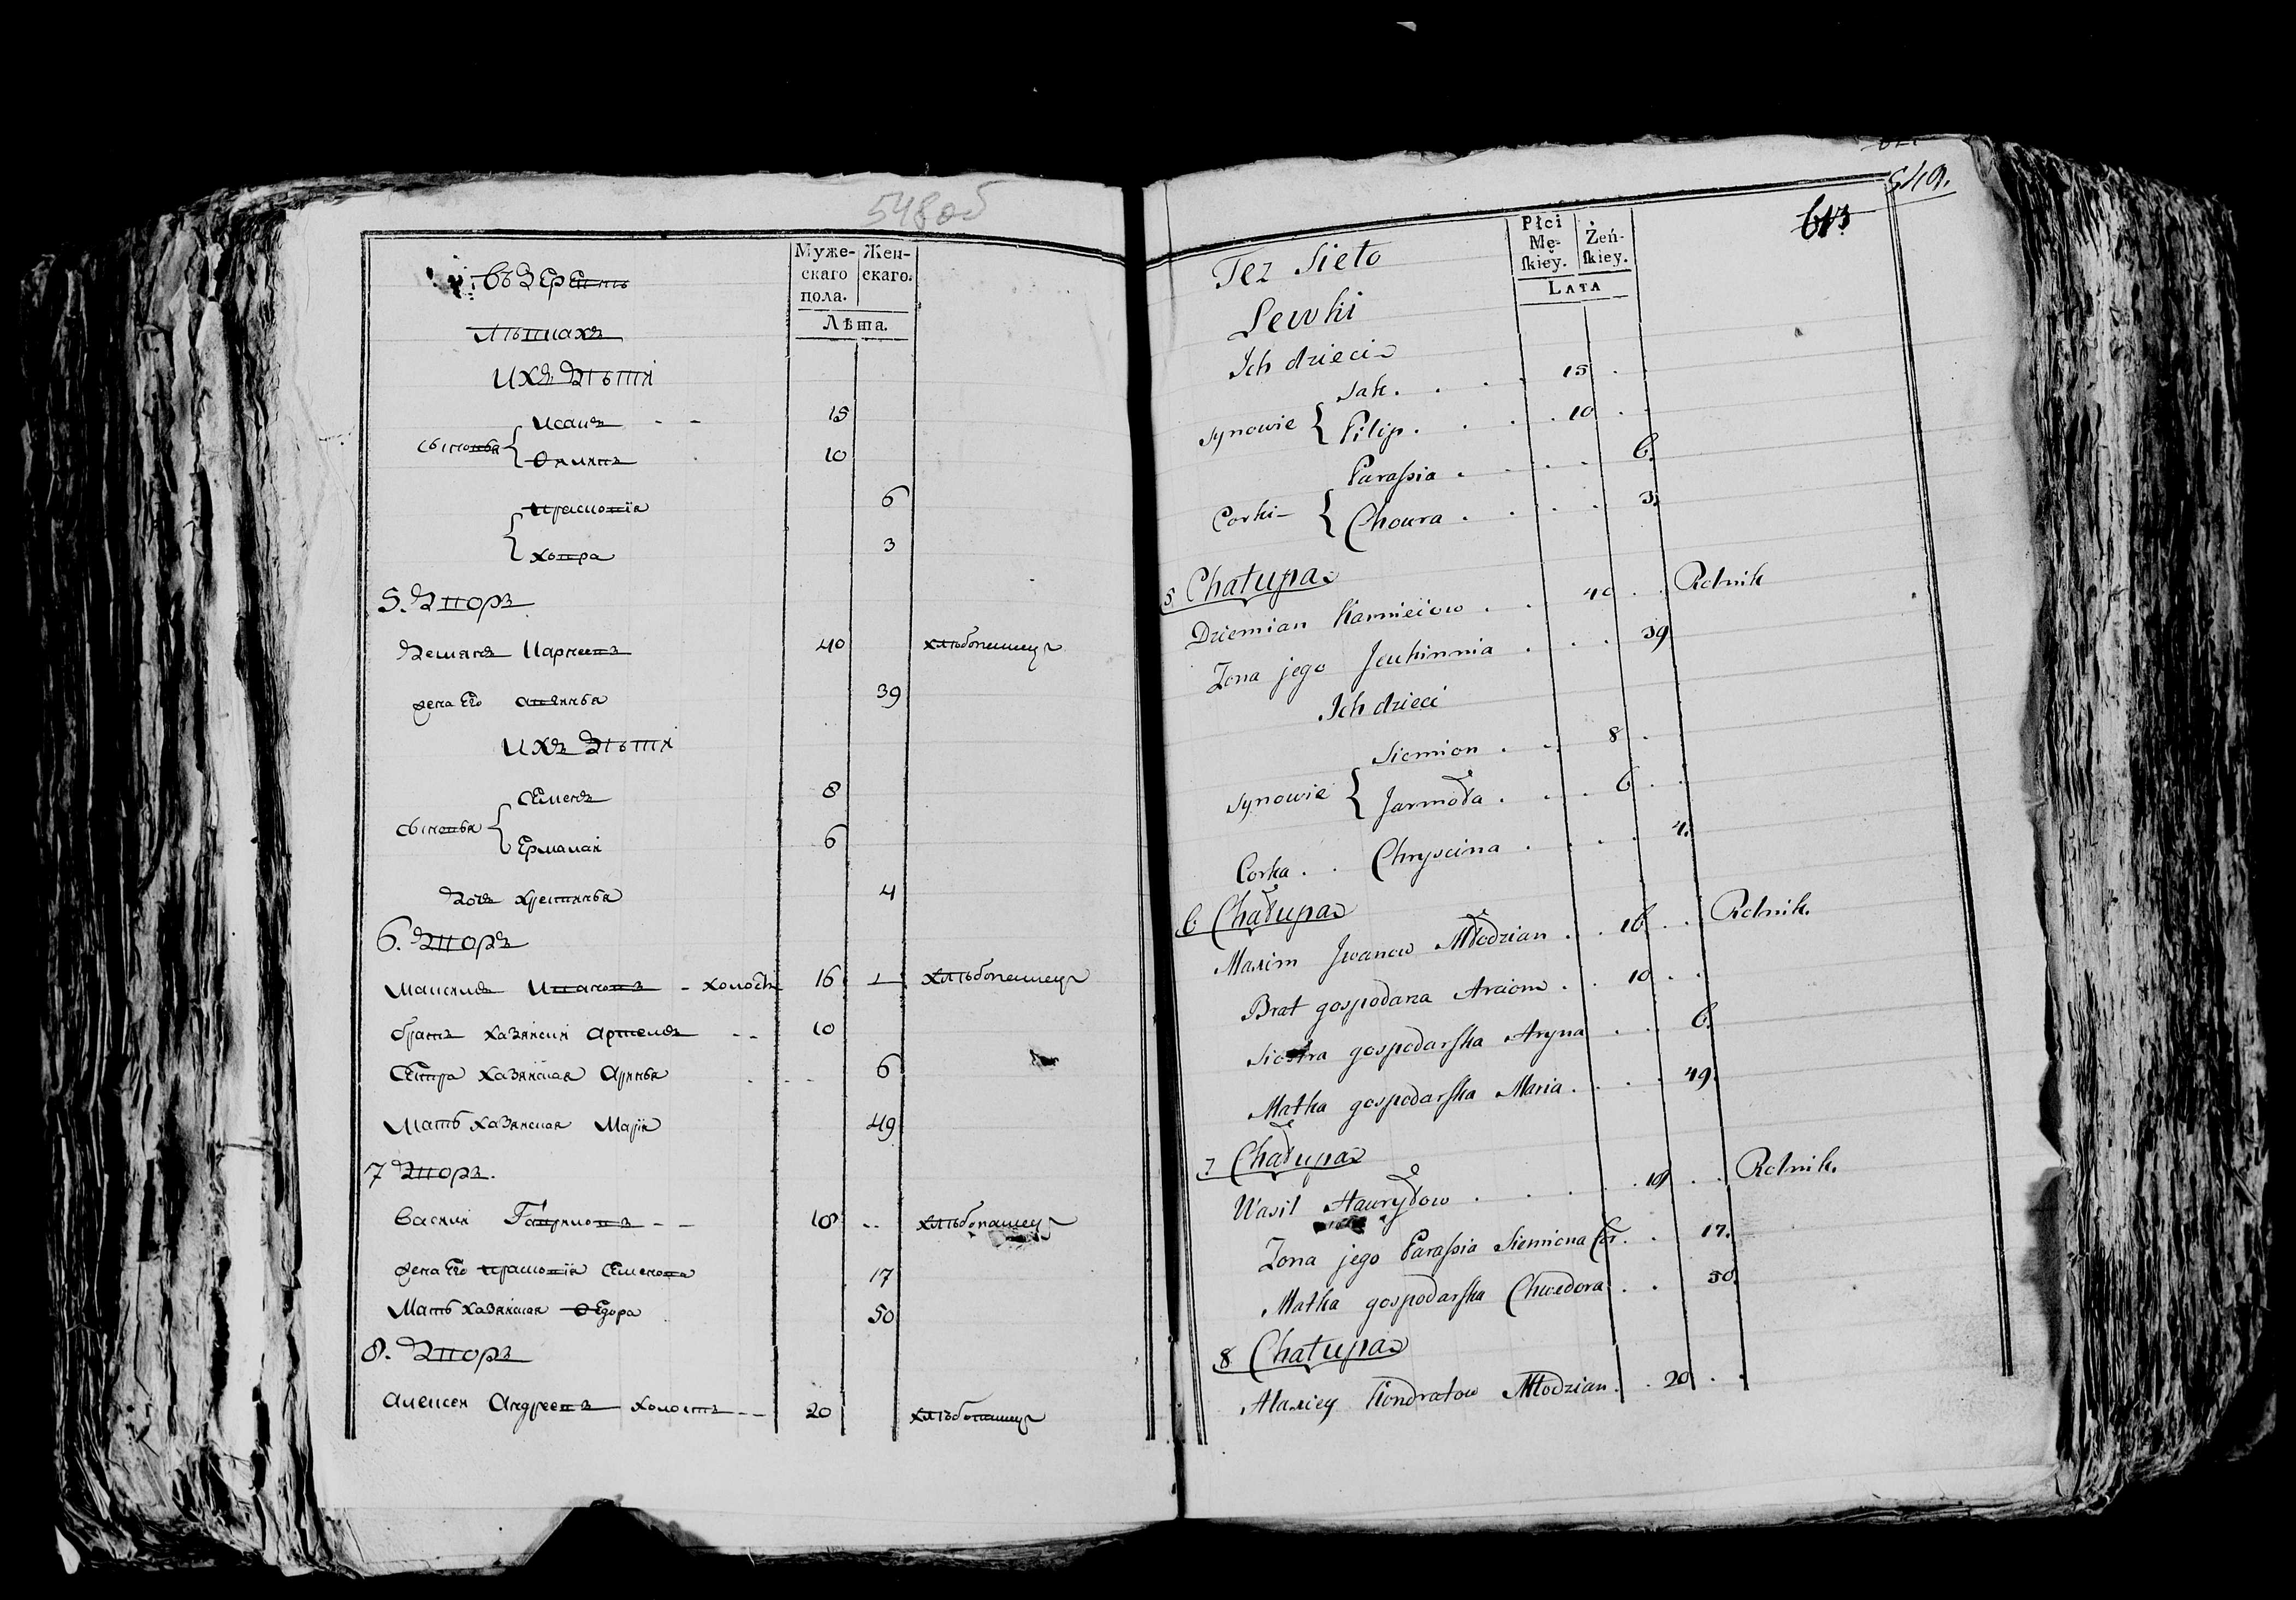 548 об
Муже-
скаго
пола.
Жен-
скаго.
Лѣта.
въ
Лѣтахъ
ихъ дѣти
Исакъ - - 15
сыновья { Филипъ 10
Прасковія 6
{ Ховра 3
5. Дворъ
Демянъ Карнеевъ 40 хлѣбопашецъ
жена его 39
ихъ дѣти
Семенъ 8
сыновья { Ермалай 6
Дочь Христинья 4
6. Дворъ
Максимъ Ивановъ - холостъ 16 хлѣбопашецъ
братъ хазяиский Артемъ - - 10
Сестра хазяйская Аринья 6
Мать хазяйская Марія 49
7 Дворъ.
Василий Гавриловъ - - 18 - - хлѣбопашецъ
жена его Прасковія Семенова 17
Мать хазяйская Федора 50
8. Дворъ
Алексей Андреевъ холостъ - - 20 хлѣбопашецъ
549.
613
Płci
Mę-
ſkiey.
Żeń-
ſkiey.
LATA
Tez Sieło
Lewki
Ich dzieci
Jak . . . 15 .
Synowie { Filip . . . . 10 . .
Paraſsia . . . . . 6.
Corki { Choura . . . . 3.
5. Chałupa
Dziemian Karnieiow . . 40 . . Rolnik
Zona jego Jeuhinnia . . . 39
Ich dzieci
Siemion . . 8 .
Synowie { Jarmoła . . . 6 . .
Corka . . Chryscina . . . . 4.
6 Chałupa
Maxim Jwanow Młodzian . . 16 . . Rolnik.
Brat gospodarza Arciom . . 10 . .
Siostra gospodarſka Aryna . . 6.
Matka gospodarſka Maria . . . . 49.
7 Chałupa
Wasil Hawryłow . . . . 18 . . Rolnik.
Zona jego Paraſsia Siemiona Cor. . 17.
Matka gospodarſka Chwedora . . 50.
8 Chałupa
Alaxiey Kondratow Młodzian . . 20 . .